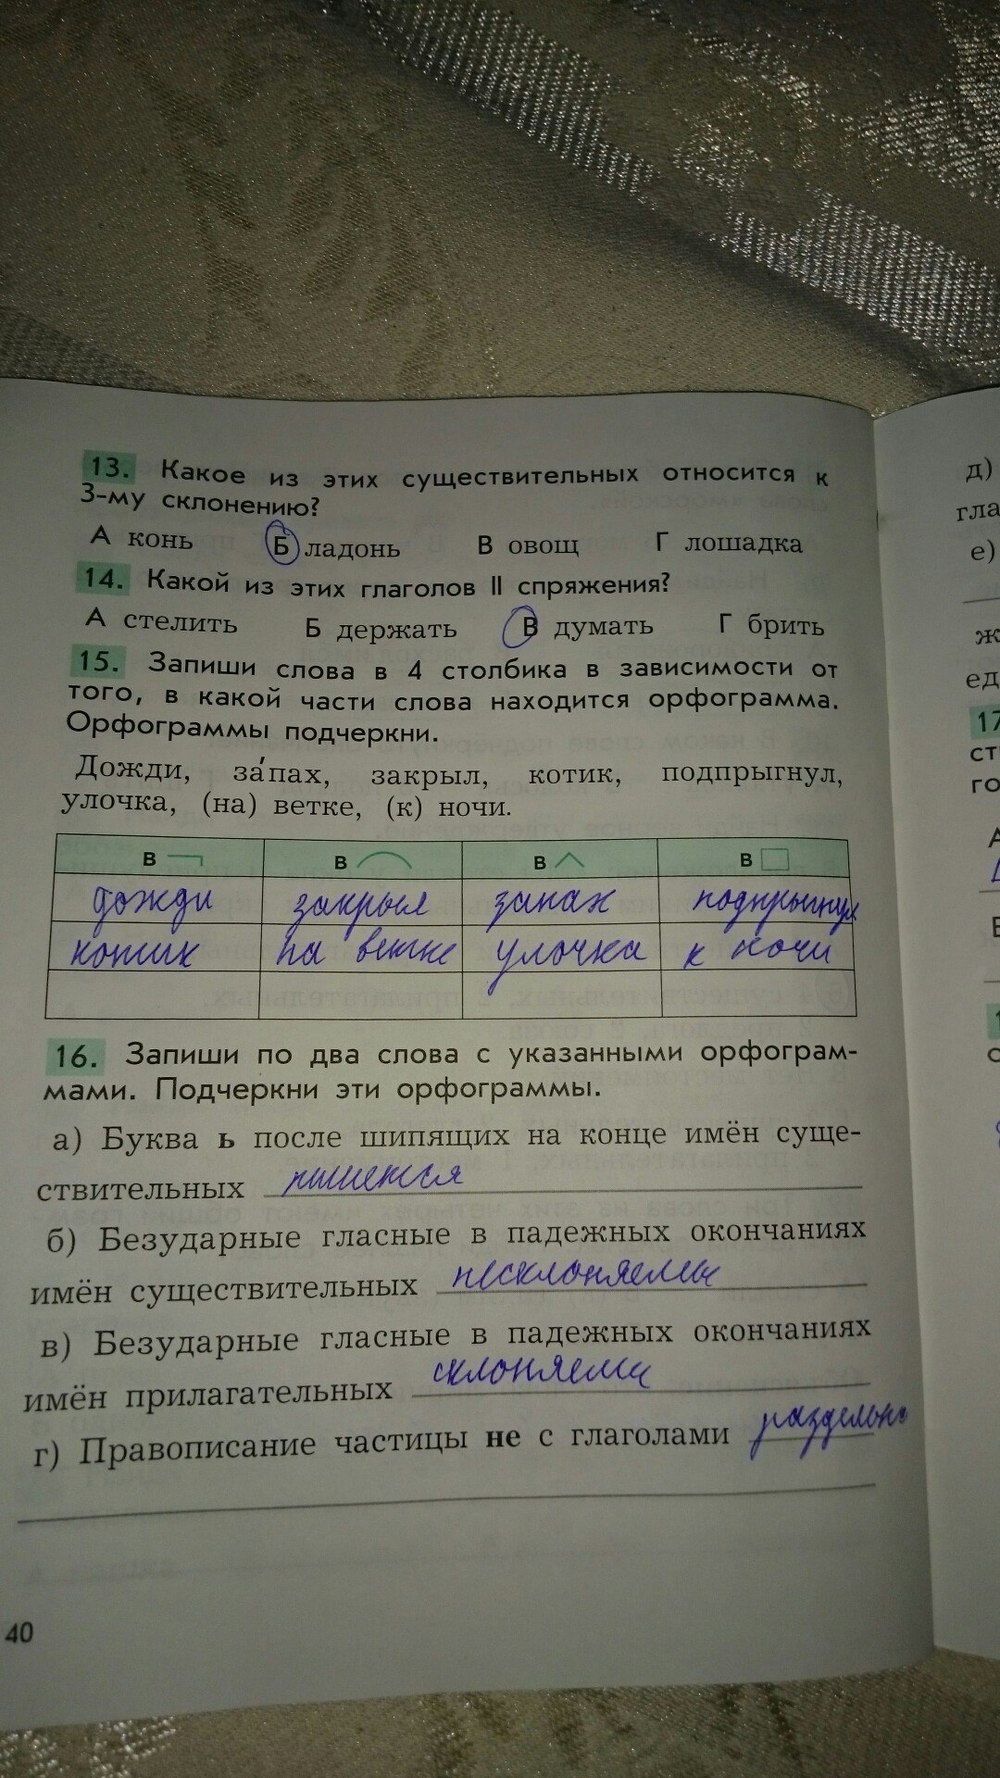 13. Какое из этих существительных относится к
3-му склонению?
А конь Б ладонь В овощ Г лошадка
14. Какой из этих глаголов II спряжения?
А стелить Б держать В думать Г брить
15. Запиши слова в 4 столбика в зависимости от
того, в какой части слова находится орфограмма.
Орфограммы подчеркни.
Дожди, за́пах, закрыл, котик, подпрыгнул,
улочка, (на) ветке, (к) ночи.
в в в в
дожди закрыл запах подпрыгнул
котик на ветке улочка к ночи
16. Запиши по два слова с указанными орфограм-
мами. Подчеркни эти орфограммы.
а) Буква ь после шипящих на конце имён суще-
ствительных пишется
б) Безударные гласные в падежных окончаниях
имён существительных несклоняемы
в) Безударные гласные в падежных окончаниях
имён прилагательных склоняемы
г) Правописание частицы не с глаголами раздельно
40
д)
гла
е)
ж
ед
17
ст
го